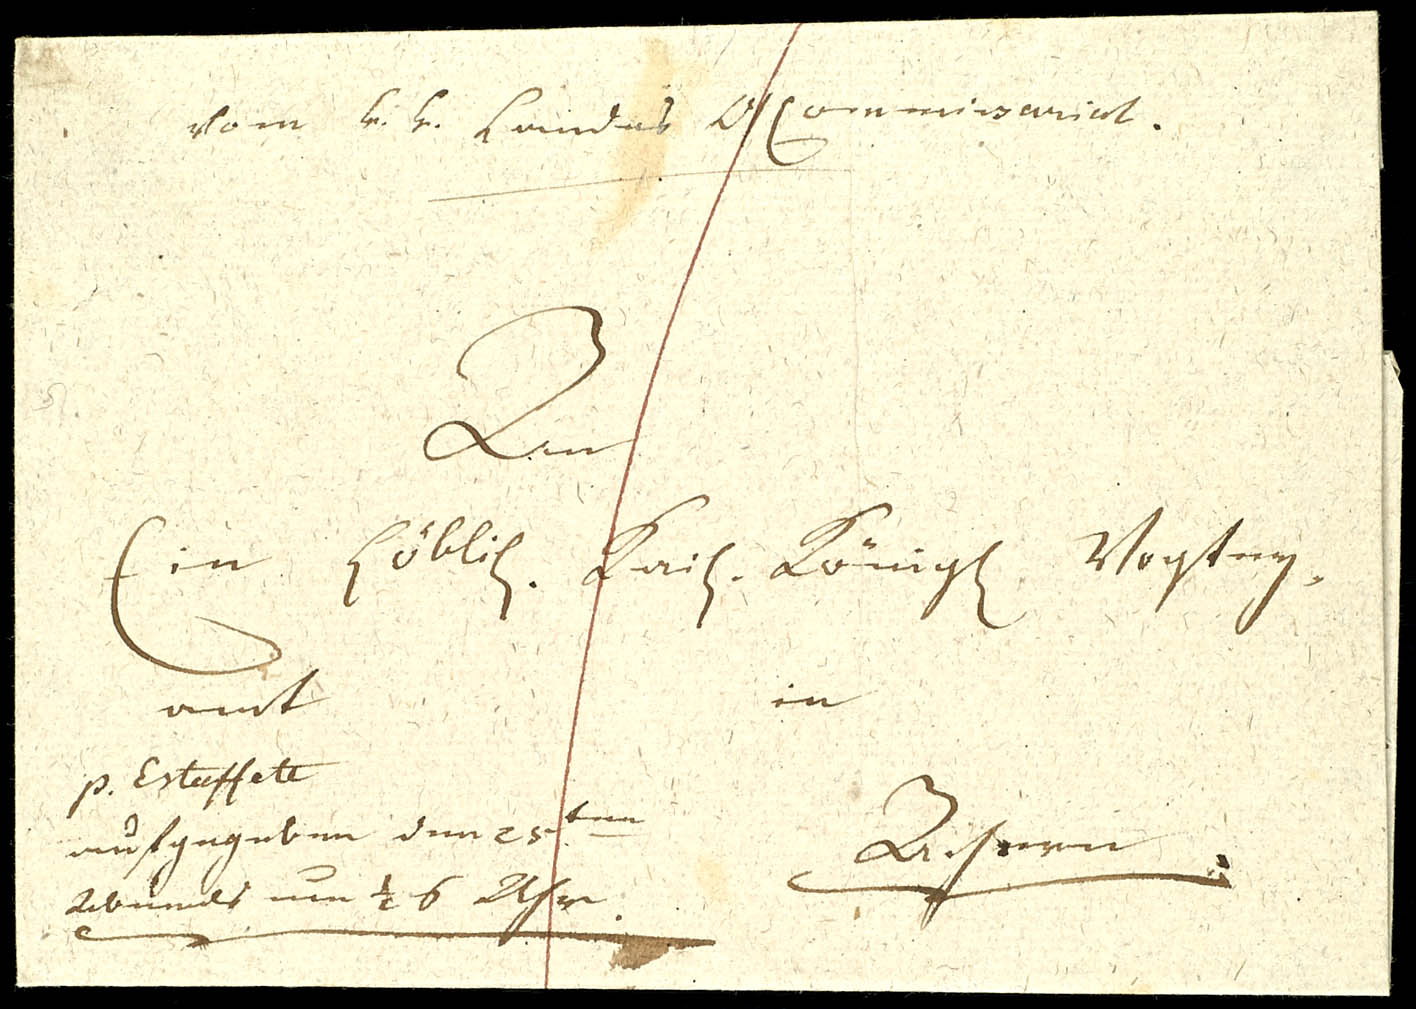 Vom k. k. Landes O Commissariat.
An
Ein Löblich. Kais. Königl. Vogtey-
amt in
p. Estaffete
aufgegeben den 25ten
Abends um ½ 6 Uhr.
Achern